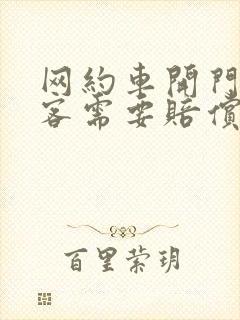 网約車開門
客需要賠償
百里萦玥